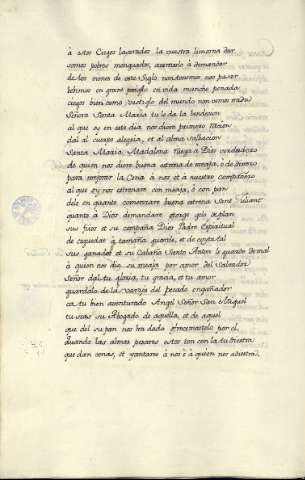 à estos Ciegos lacerados la vuestra limosna dar
somos pobres menguados, avemoslo à demandar
de los vienes de este Siglo non tenemos nos pasar
bebimos en grant peligro en vida mucho penada
ciegos bien como vestiglo del mundo non vemos nada
Señora Santa Maria tu le da la bendicion
al que oy en este dia nos diere primero racion
dal al cuerpo alegria, et al alma salbacion
Santa Maria Madalena ruega à Dios verdadero
de quien nos diere buena estrena de meaja, ò de dinero
para mejorar la Cena à nos et à nuestro compañero
al que oy nos estrenare con meaja, ò con pan
dele en quanto comenzare buena estrena Sant Julian
quanto à Dios demandare otorge gelo de plan
sus fijos et su compaña Dios Padre Espiritual
de ceguedat à tamaña guarde, et de coyta tal
sus ganados et su Cabaña Santo Anton le guarde de mal
à quien nos dio su meaja por amor del Salvador
Señor dal tu gloria, tu gracia, et tu amor
guardalo de la varaja del pecado engañador
ca tu bien aventurado Angel Señor San Miguel
tu seas su Abogado de aquella, et de aquel
que del su pan nos ha dado ofrecemostelo por el,
quando las almas pesares estos ten con la tu diestra
que dan cenas, et yantares à nos è à quien nos adiestra.